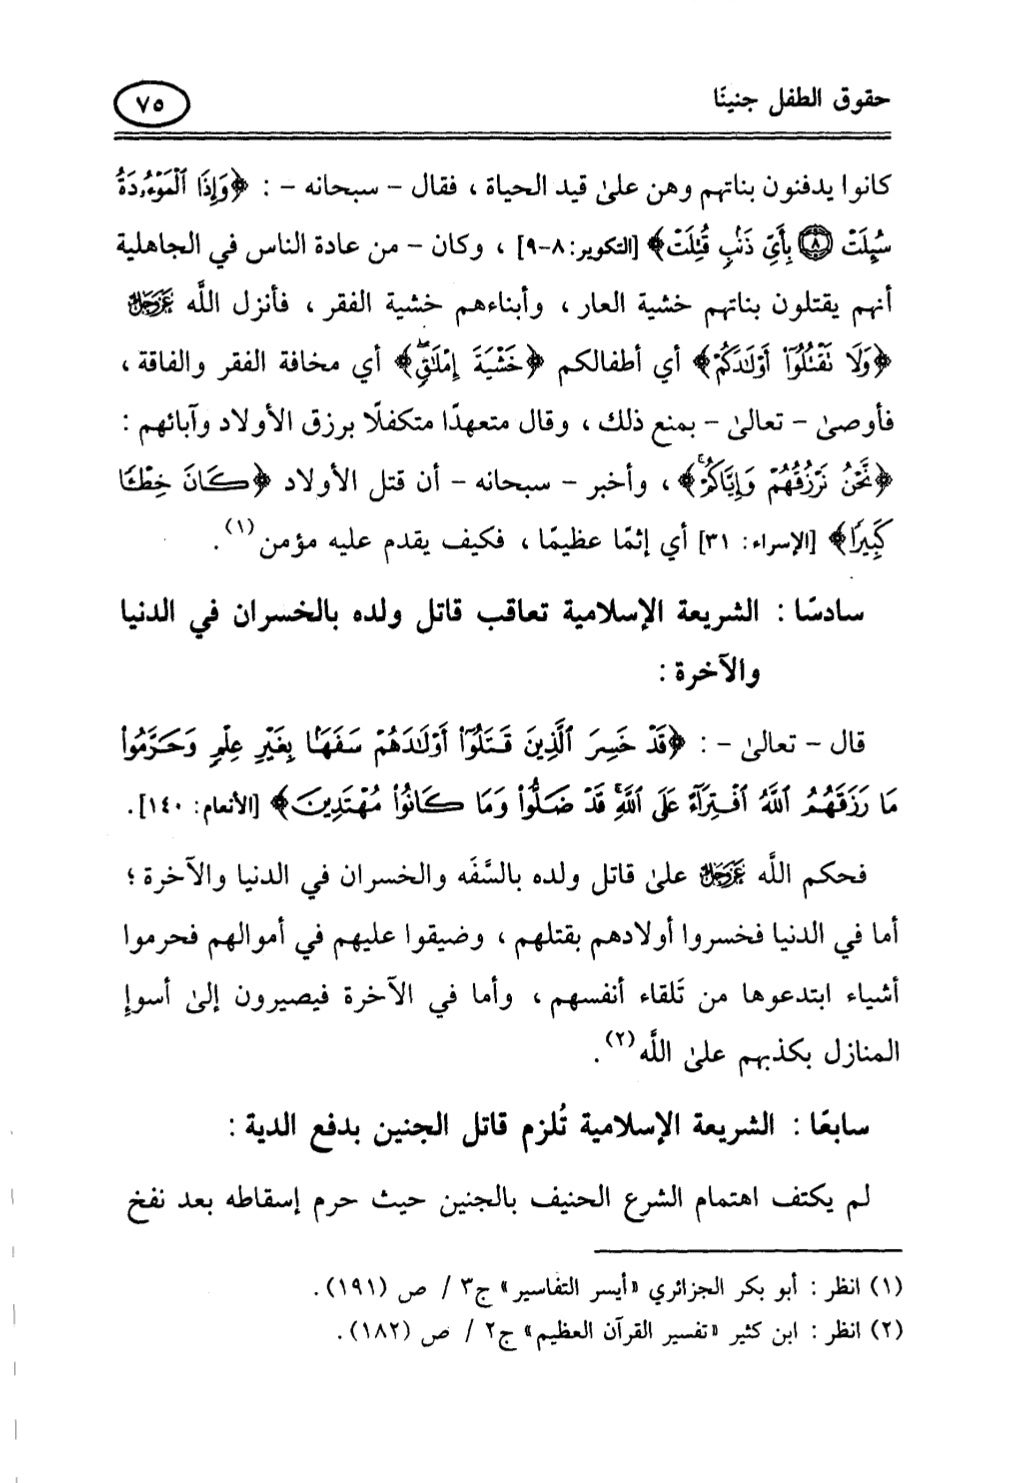 حقوق الطفل جنينًا ٧٥
كانوا يدفنون بناتهم وهن علىٰ قيد الحياة ، فقال – سبحانه – : ﴿وَإِذَا ٱلْمَوْءُۥدَةُ
سُئِلَتْ ۝٨ بِأَىِّ ذَنۢبٍ قُتِلَتْ﴾ [التكوير: ٨-٩] ، وكان – من عادة الناس في الجاهلية
أنهم يقتلون بناتهم خشية العار ، وأبناءهم خشية الفقر ، فأنزل اللَّه عَزَّوَجَلَّ
﴿وَلَا نَقْتُلُوٓا۟ أَوْلَٰدَكُمْ﴾ أي أطفالكم ﴿خَشْيَةَ إِمْلَٰقٍۖ﴾ أي مخافة الفقر والفاقة ،
فأوصىٰ – تعالىٰ – بمنع ذلك ، وقال متعهدًا متكفلًا برزق الأولاد وآبائهم :
﴿نَّحْنُ نَرْزُقُهُمْ وَإِيَّاكُمْۚ﴾ ، وأخبر – سبحانه – أن قتل الأولاد ﴿كَانَ خِطْـًٔا
كَبِيرًا﴾ [الإسراء: ٣١] أي إثمًا عظيمًا ، فكيف يقدم عليه مؤمن(١).
سادسًا : الشريعة الإسلامية تعاقب قاتل ولده بالخسران في الدنيا
والآخرة :
قال – تعالىٰ – : ﴿قَدْ خَسِرَ ٱلَّذِينَ قَتَلُوٓا۟ أَوْلَٰدَهُمْ سَفَهًۢا بِغَيْرِ عِلْمٍ وَحَرَّمُوا۟
مَا رَزَقَهُمُ ٱللَّهُ ٱفْتِرَآءً عَلَى ٱللَّهِۚ قَدْ ضَلُّوا۟ وَمَا كَانُوا۟ مُهْتَدِينَ﴾ [الأنعام: ١٤٠].
فحكم اللَّه عَزَّوَجَلَّ علىٰ قاتل ولده بالسَّفَه والخسران في الدنيا والآخرة ؛
أما في الدنيا فخسروا أولادهم بقتلهم ، وضيقوا عليهم في أموالهم فحرموا
أشياء ابتدعوها من تَلقاء أنفسهم ، وأما في الآخرة فيصيرون إلىٰ أسوإ
المنازل بكذبهم علىٰ اللَّه(٢).
سابعًا : الشريعة الإسلامية تُلزم قاتل الجنين بدفع الدية :
لم يكتف اهتمام الشرع الحنيف بالجنين حيث حرم إسقاطه بعد نفخ
(١) انظر : أبو بكر الجزائري «أيسر التفاسير» ج٣ / ص (١٩١).
(٢) انظر : ابن كثير «تفسير القرآن العظيم» ج٢ / ص (١٨٢).